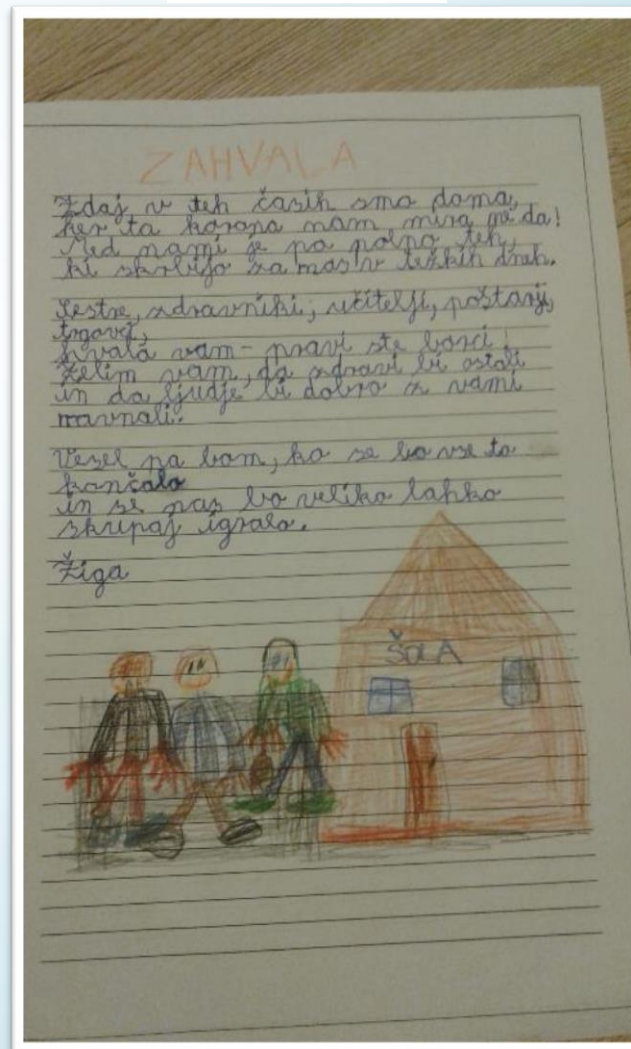 ZAHVALA
Zdaj v teh časih smo doma,
ker ta korona nam mira ne da!
Med nami je pa polno teh,
ki skrbijo za nas v težkih dneh.
Sestre, zdravniki, učitelji, poštarji,
trgovci,
hvala vam - pravi ste borci!
Želim vam, da zdravi bi ostali
in da ljudje bi dobro z vami
ravnali.
Vesel pa bom, ko se bo vse to
končalo
in se nas bo veliko lahko
skupaj igralo.
Žiga
ŠOLA